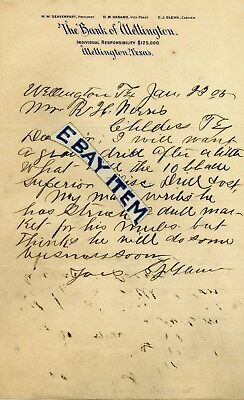 H. W. DEAVENPORT, PRESIDENT D. M. HENARD, VICE PREST C. J. GLENN, CASHIER
The Bank of Wellington.
INDIVIDUAL RESPONSIBILITY $125,000.
Wellington, Texas.
Wellington Tx Jan. 23 05
Mr R H. Norris
Childress Tx
Dear Sir: I will want
a grain drill after a little
What will the 10 blade
Superior Disc Drill cost
My man writes he
has struck a dull mar-
ket for his mules. but
thinks he will do some
business soon.
Yours
EBAY ITEM